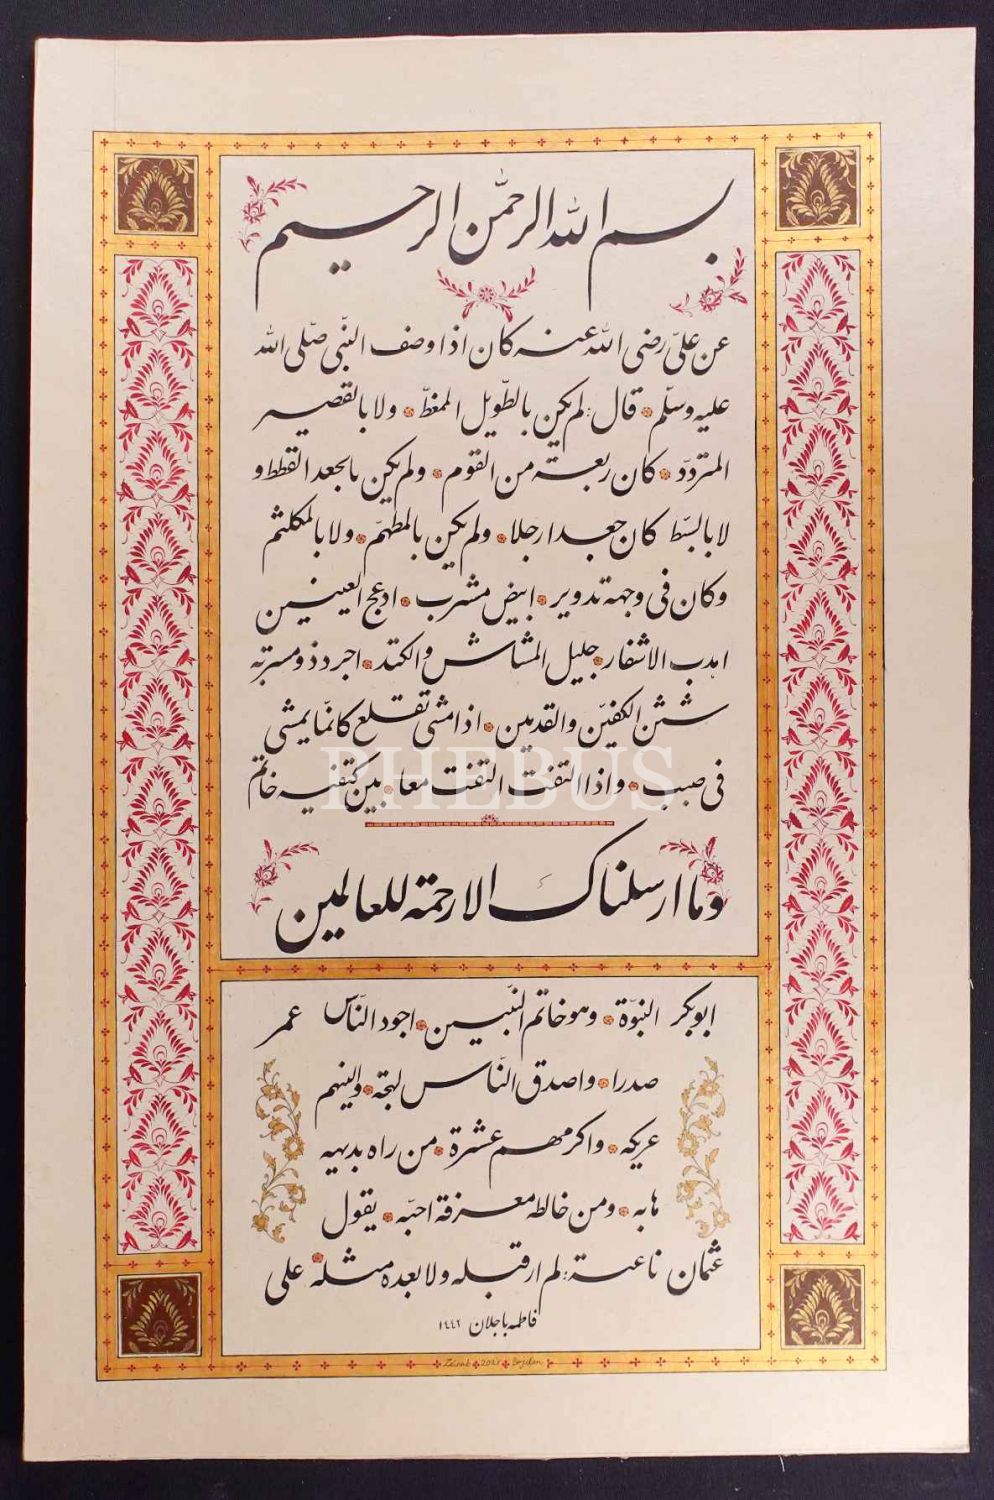 بسم الله الرحمن الرحيم
عن علىّ رضى الله عنه كان اذا وصف النّبى صلّى الله
عليه وسلّم قال: لم يكن بالطّويل الممغّط ولا بالقصير
المتردّد كان ربعة من القوم ولم يكن بالجعد القطط و
لا بالسّبط كان جعدا رجلا ولم يكن بالمطهّم ولا بالمكلثم
وكان فى وجهه تدوير ابيض مشرب ادعج العينين
اهدب الاشفار جليل المشاش والكتد اجرد ذو مسربة
شثن الكفين والقدمين اذا مشى تقلع كانّما يمشى
فى صبب واذا التفت التفت معا بين كتفيه خاتم
PHEBUS
وما ارسلناك الا رحمة للعالمين
ابوبكر النبوّة وهو خاتم النّبيين اجود النّاس عمر
صدرا واصدق النّاس لهجة والينهم
عريكة واكرمهم عشرة من راه بديهة
هابه ومن خالطه معرفة احبّه يقول
عثمان ناعته: لم ار قبله ولا بعده مثله على
فاطمه باجلان ١٤٤٢
Zeinab 2021 Bojdan